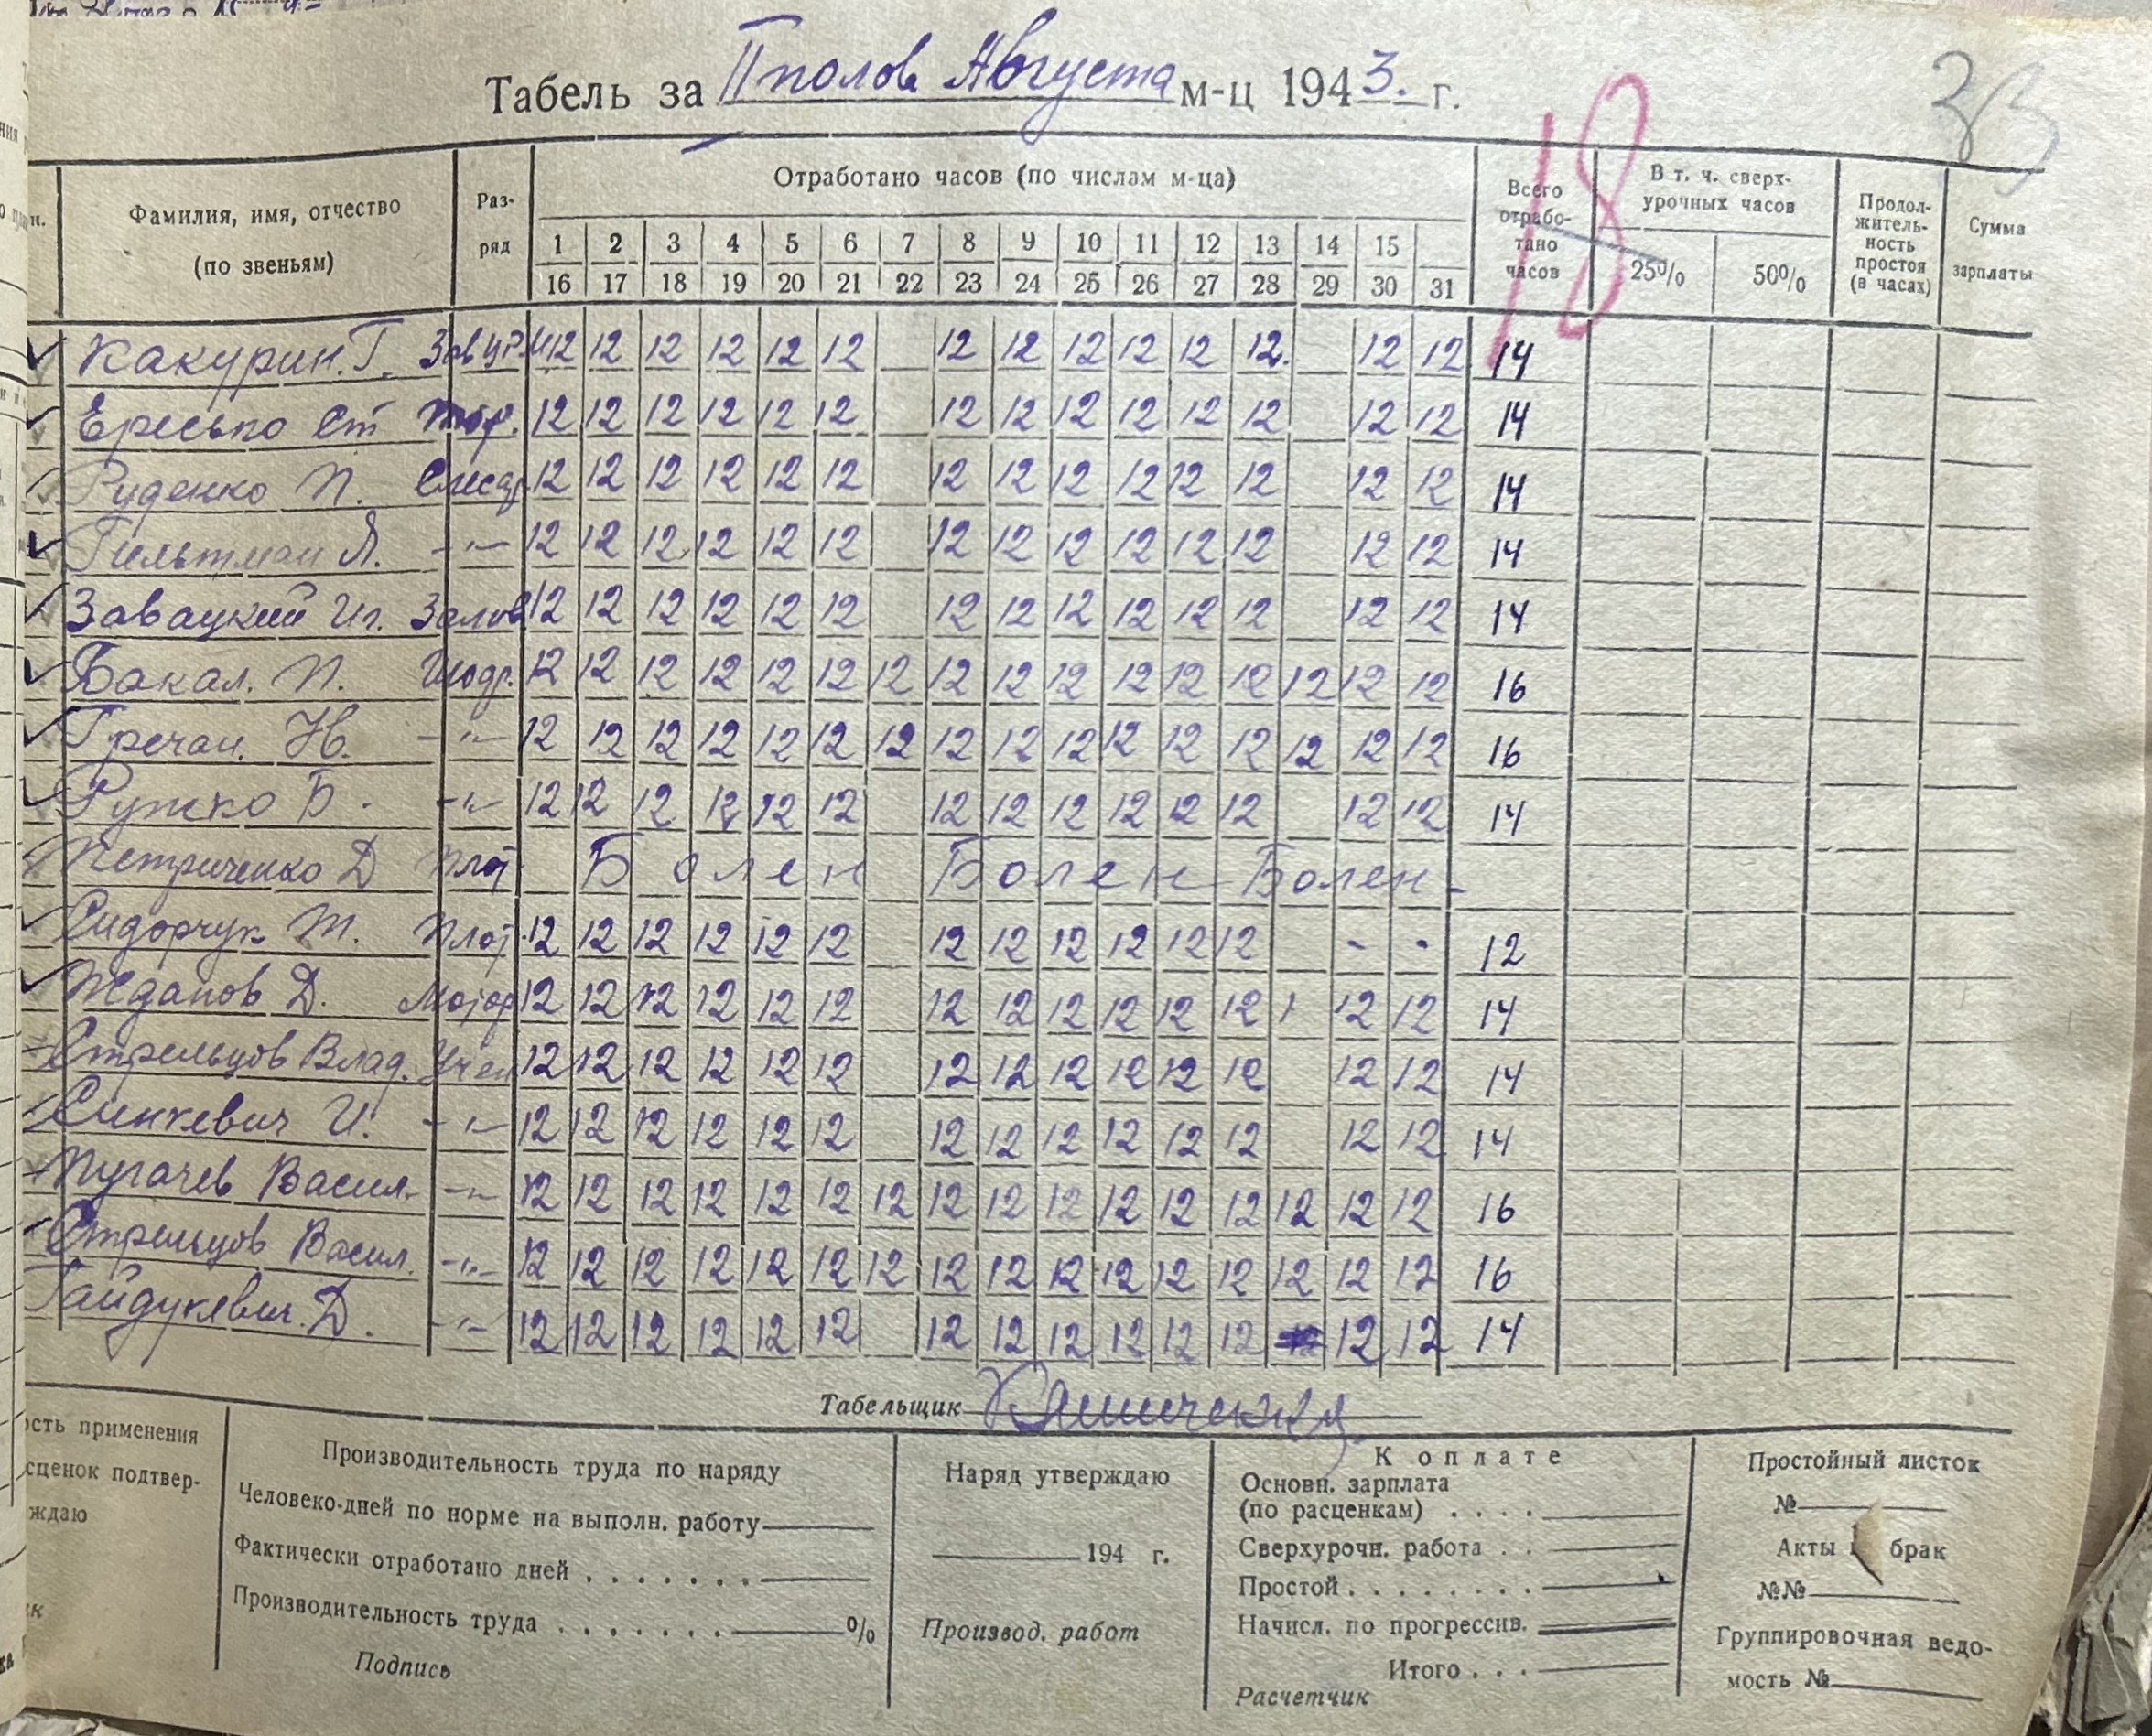 Табель за II полов Августа м-ц 1943. г.
18
33
Фамилия, имя, отчество
(по звеньям)
Раз-
ряд
Отработано часов (по числам м-ца)
1 2 3 4 5 6 7 8 9 10 11 12 13 14 15
16 17 18 19 20 21 22 23 24 25 26 27 28 29 30 31
Всего
отрабо-
тано
часов
В т. ч. сверх-
урочных часов
25% 50%
Продол-
житель-
ность
простоя
(в часах)
Сумма
зарплаты
Какурин. Г. 12 12 12 12 12 12 12 12 12 12 12 12. 12 12 14
Ересько Ст 12 12 12 12 12 12 12 12 12 12 12 12 12 12 14
Руденко П. Слесар. 12 12 12 12 12 12 12 12 12 12 12 12 12 12 14
Гильтман Я. -"- 12 12 12 12 12 12 12 12 12 12 12 12 12 12 14
Завацкий Иг. 12 12 12 12 12 12 12 12 12 12 12 12 12 12 14
Бакал. П. 12 12 12 12 12 12 12 12 12 12 12 12 12 12 12 12 16
Гречан. Н. -"- 12 12 12 12 12 12 12 12 12 12 12 12 12 12 12 12 16
Ружко Б. -"- 12 12 12 12 12 12 12 12 12 12 12 12 12 12 14
Петриченко Д Плот Болен Болен Болен -
Сидорчук М. Плот. 12 12 12 12 12 12 12 12 12 12 12 12 - - 12
Жданов Д. Мотор 12 12 12 12 12 12 12 12 12 12 12 12 1 12 12 14
Стрельцов Влад. Учен 12 12 12 12 12 12 12 12 12 12 12 12 12 12 14
Синкевич И. -"- 12 12 12 12 12 12 12 12 12 12 12 12 12 12 14
Пугачев Васил. -"- 12 12 12 12 12 12 12 12 12 12 12 12 12 12 12 12 16
Стрельцов Васил. -"- 12 12 12 12 12 12 12 12 12 12 12 12 12 12 12 12 16
Гайдукевич. Д. -"- 12 12 12 12 12 12 12 12 12 12 12 12 12 12 14
Табельщик
ость применения
сценок подтвер-
ждаю
Производительность труда по наряду
Человеко-дней по норме на выполн. работу
Фактически отработано дней . . . . . . .
Производительность труда . . . . . . . %
Подпись
Наряд утверждаю
194 г.
Производ. работ
К оплате
Основн. зарплата
(по расценкам) . . . .
Сверхурочн. работа . .
Простой . . . . . . . .
Начисл. по прогрессив.
Итого . . .
Расчетчик
Простойный листок
№
Акты брак
№№
Группировочная ведо-
мость №